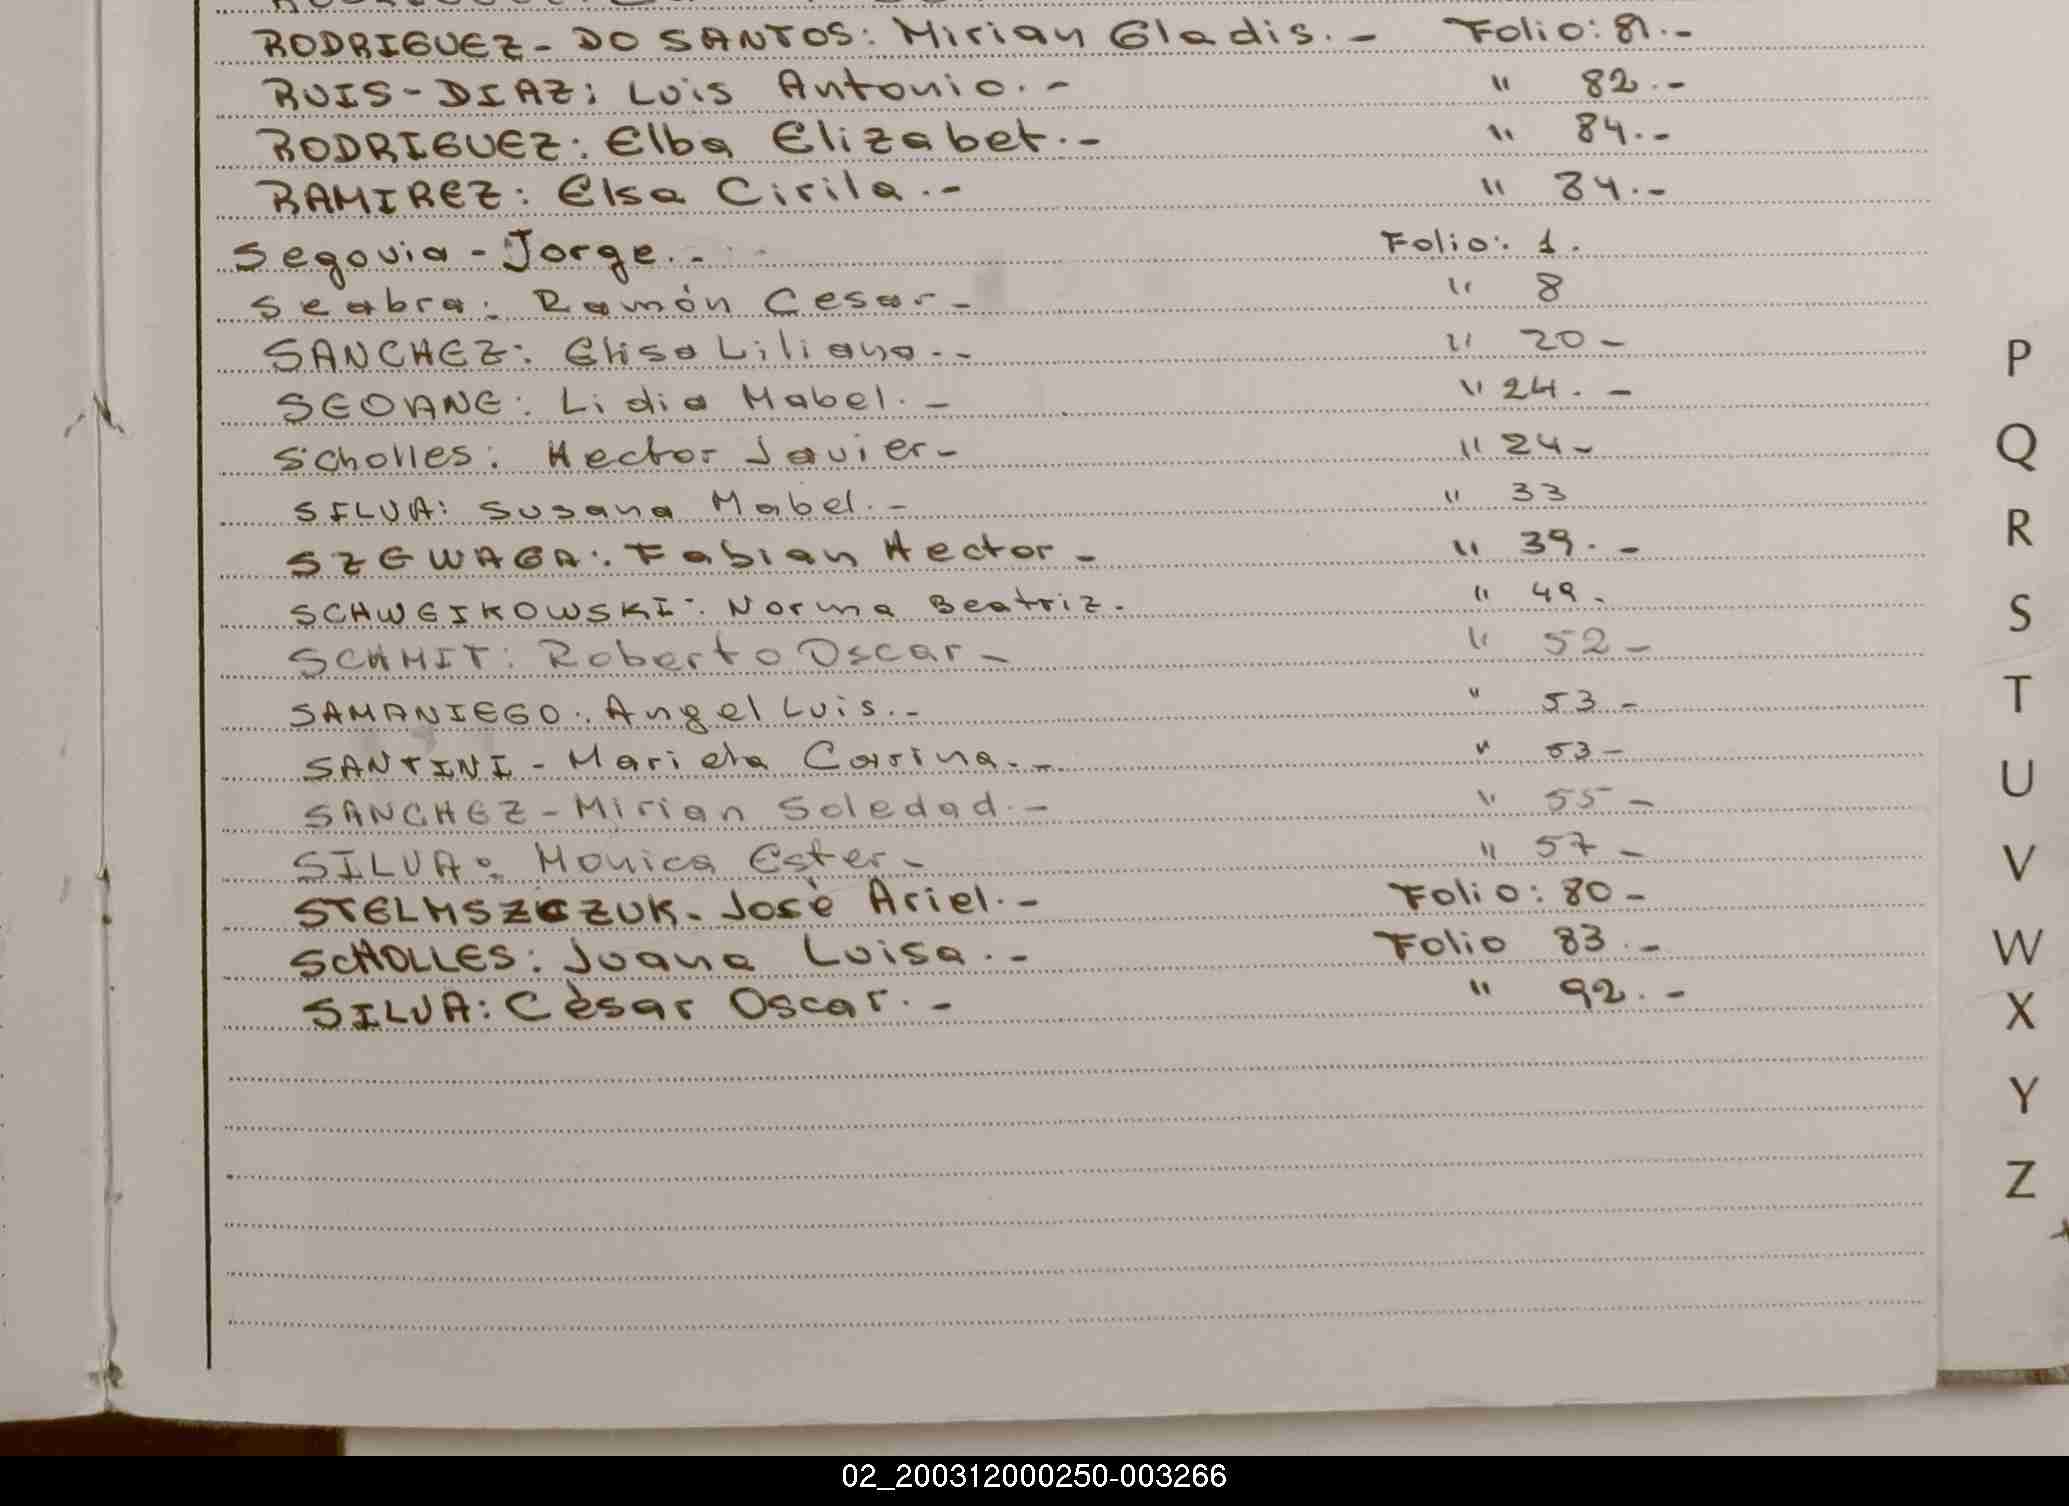 RODRIGUEZ - DO SANTOS: Mirian Gladis. - Folio: 81. -
RUIS - DIAZ: Luis Antonio. - " 82. -
RODRIGUEZ: Elba Elizabet. - " 84. -
RAMIREZ: Elsa Cirila. - " 84. -
Segovia - Jorge. - Folio: 1.
Seabra: Ramón Cesar - " 8
SANCHEZ: Elisa Liliana. - " 20 -
SEOANE: Lidia Mabel. - " 24. -
Scholles: Hector Javier - " 24 -
SILVA: Susana Mabel. - " 33
SZEWAGA: Fabian Hector - " 39. -
SCHWEIKOWSKI: Norma Beatriz. " 49.
SCHMIT: Roberto Oscar - " 52 -
SAMANIEGO: Angel Luis. - " 53 -
SANTINI - Mariela Carina. - " 53 -
SANCHEZ - Mirian Soledad. - " 55 -
SILVA: Monica Ester - " 57 -
STELMSZCZUK - Josè Ariel. - Folio: 80 -
SCHOLLES: Juana Luisa. - Folio 83. -
SILVA: Cèsar Oscar. - " 92. -
P
Q
R
S
T
U
V
W
X
Y
Z
02_200312000250-003266